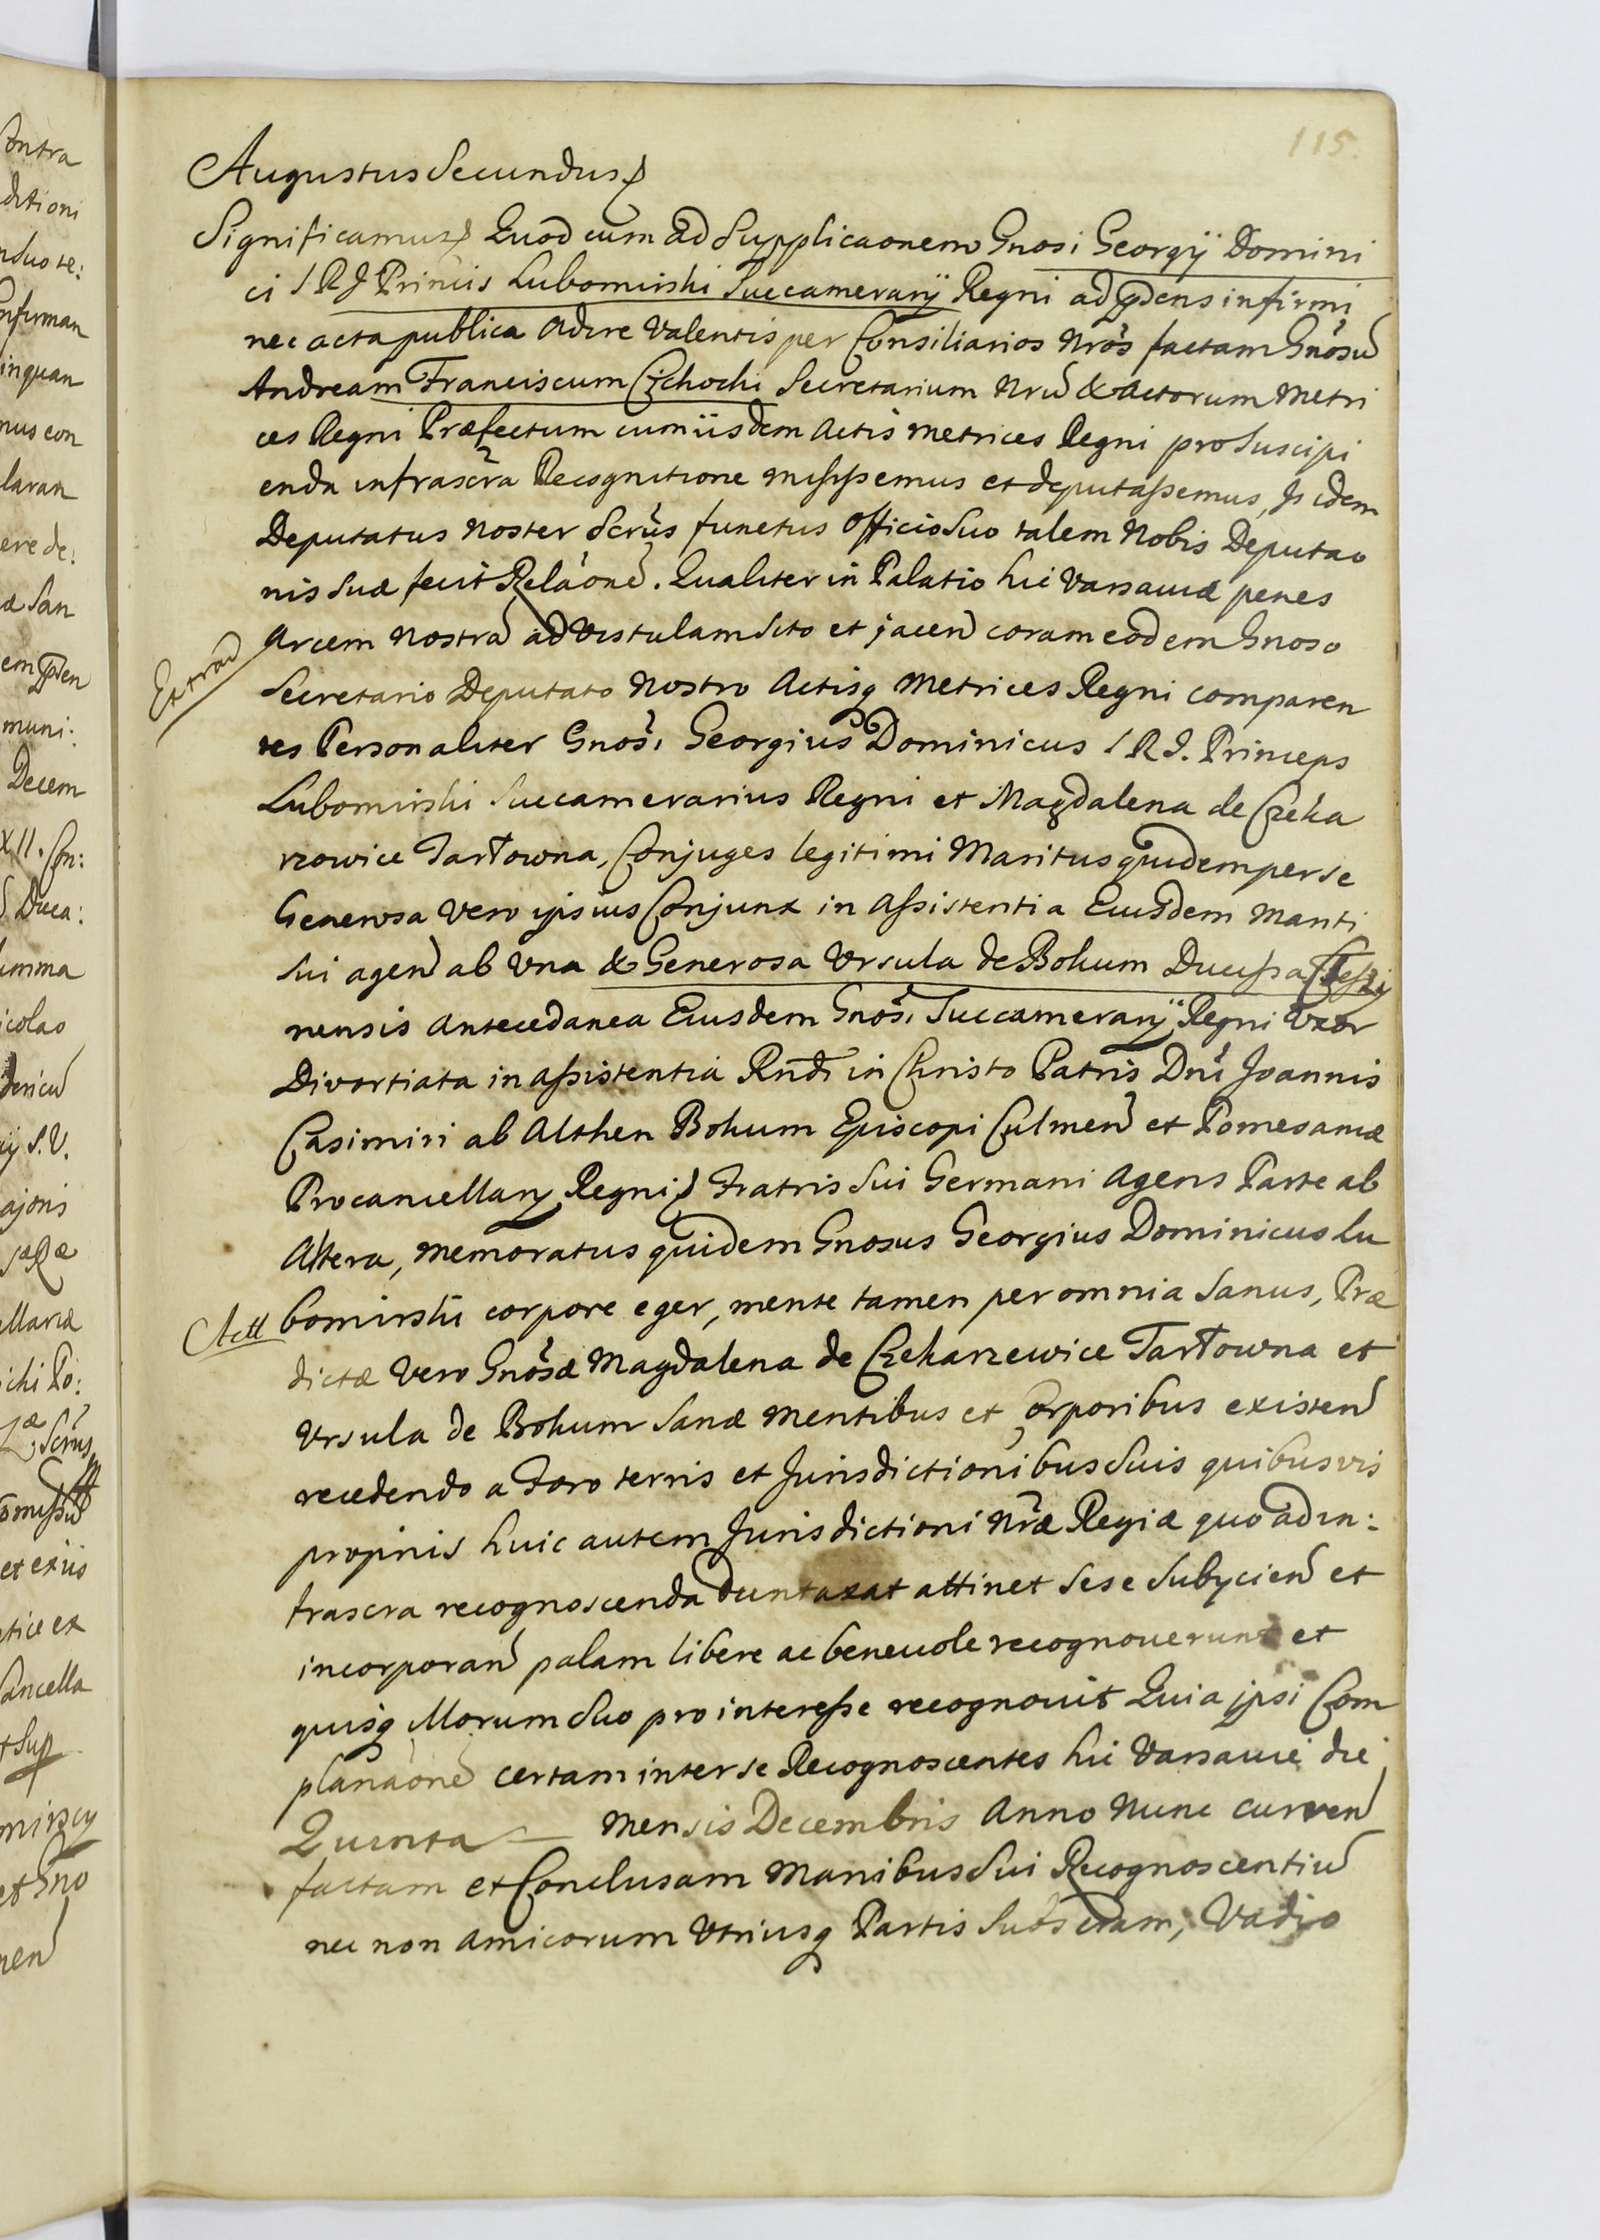 115.
Augustus Secundus
Significamus Quod cum ad Supplicaonem Gnosi Georgÿ Domini
ci S R J Princis Lubomirski Succamerarÿ Regni ad pdens infirmi
nec acta publica adire valentis per Consiliarios Nrõs factam Gnõsũ
Andream Franciscum Cichocki Secretarium Nrũ & Actorum Metri
ces Regni Præfectum cum iisdem Actis Metrices Regni pro Suscipi
enda infrascra Recognitione misissemus et deputassemus, Is idem
Deputatus Noster Scrus functus Officio Suo talem Nobis Deputao
nis Suæ fecit Relaonẽ. Qualiter in Palatio hic Varsaviæ penes
Extrad Arcem Nostrã ad Vistulam Sito et jacen coram eodem Gnoso
Secretario Deputato Nostro Actisq Metrices Regni comparen
tes Personaliter Gnosi Georgius Dominicus S R I. Princeps
Lubomirski Succamerarius Regni et Magdalena de Czeka
rzowice Tarłowna, Conjuges legitimi Maritus quidem per se
Generosa vero ipsius Conjunx in Assistentia Eiusdem Mariti
Sui agen ab Una & Generosa Ursula de Bohum Ducissa Teschi
nensis Antecedanea Eiusdem Gnosi Succamerarÿ Regni Uxor
Divortiata in assistentia Rndi in Christo Patris Dni Joannis
Casimiri ab Althen Bohum Episcopi Culmen et Pomesaniæ
Procancellary Regni Fratris Sui Germani Agens Parte ab
Altera, Memoratus quidem Gnosus Georgius Dominicus Lu
bomirski corpore eger, mente tamen per omnia Sanus, Præ
dictæ Vero Gnosæ Magdalena de Czekarzewice Tarłowna et
Ursula de Bohum Sanæ Mentibus et corporibus existen
recedendo a Foro terris et Jurisdictionibus Suis quibusvis
proprijs huic autem Jurisdictioni Nræ Regiæ quo ad in:
frascra recognoscenda duntaxat attinet Sese Subycien et
incorporan palam libere ac benevole recognoverunt et
quisq Illorum Suo pro interesse recognovit Quia ipsi Com
planaonẽ certam inter se Recognoscentes hic Varsaviæ die
Quinta Mensis Decembris Anno Nunc curren
factam et Conclusam Manibus Sui Recognoscentiũ
nec non Amicorum Utriusq Partis Subscram, Vadio